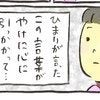 ひまりが言た
この言葉が
やけに心に
引っかかって…